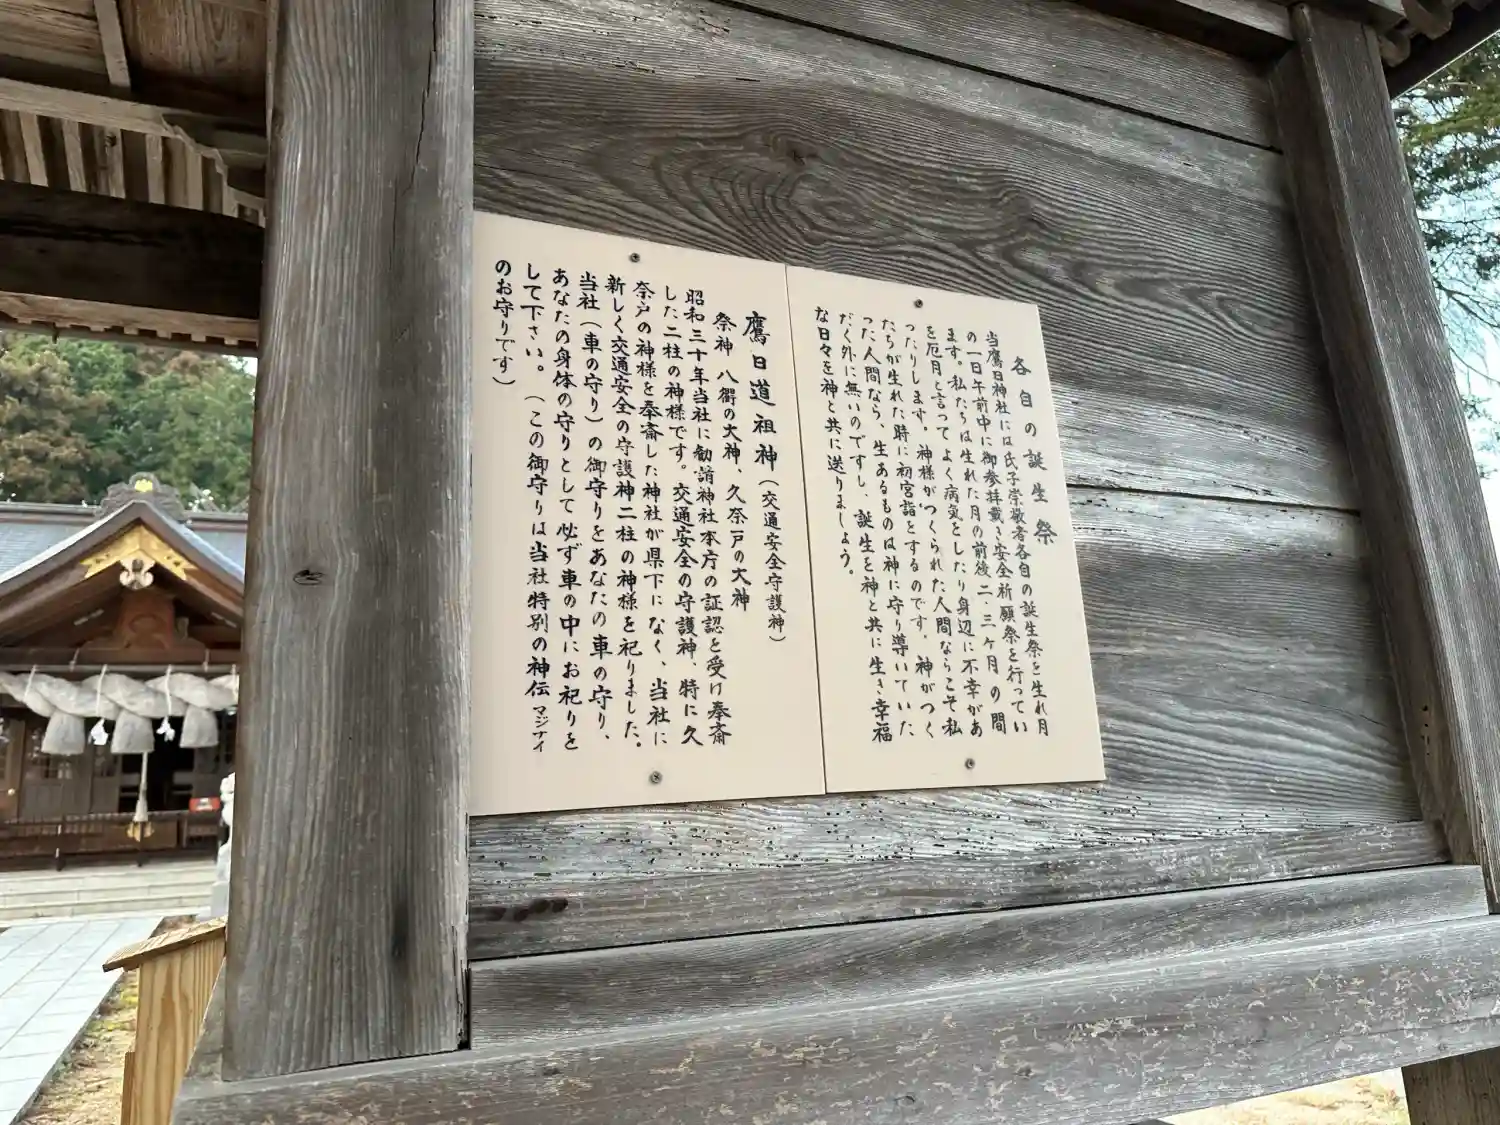 各自の誕生祭
当鷹日神社には氏子崇敬者各自の誕生祭を生れ月
の一日午前中に御参拝戴き安全祈願祭を行ってい
ます。私たちは生れた月の前後二・三ヶ月の間
を厄月と言ってよく病気をしたり身辺に不幸があ
ったりします。神様がつくられた人間ならこそ私
たちが生れた時に初宮詣とするのです。神がつく
った人間なら、生あるものは神に守り導いていた
だく外に無いのですし、誕生を神と共に生き幸福
な日々を神と共に送りましょう。
鷹日道祖神(交通安全守護神)
祭神 八衢の大神、久奈戸の大神
昭和三十年当社に勧請神社本庁の証認と受け奉斎
した二柱の神様です。交通安全の守護神、特に久
奈戸の神様を奉斎した神社が県下になく、当社に
新しく交通安全の守護神二柱の神様を祀りました。
当社(車の守り)の御守りをあなたの車の守り、
あなたの身体の守りとして必ず車の中にお祀りを
して下さい。(この御守りは当社特別の神伝マジナイ
のお守りです)